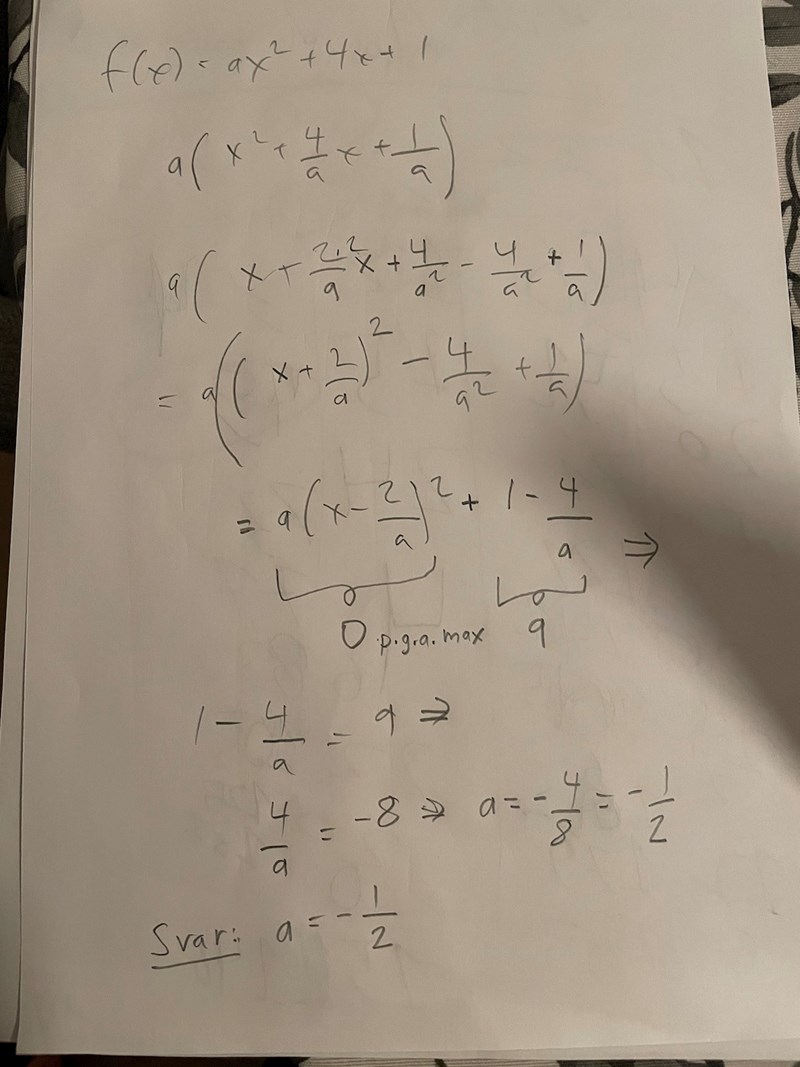 f(x) = ax² + 4x + 1
a(x² + 4/a x + 1/a)
a(x + 2·2/a x + 4/a² - 4/a² + 1/a)
= a((x + 2/a)² - 4/a² + 1/a)
= a(x - 2/a)² + 1 - 4/a ⇒
0 p.g.a. max 9
1 - 4/a = 9 ⇒
4/a = -8 ⇒ a = -4/8 = -1/2
Svar: a = -1/2